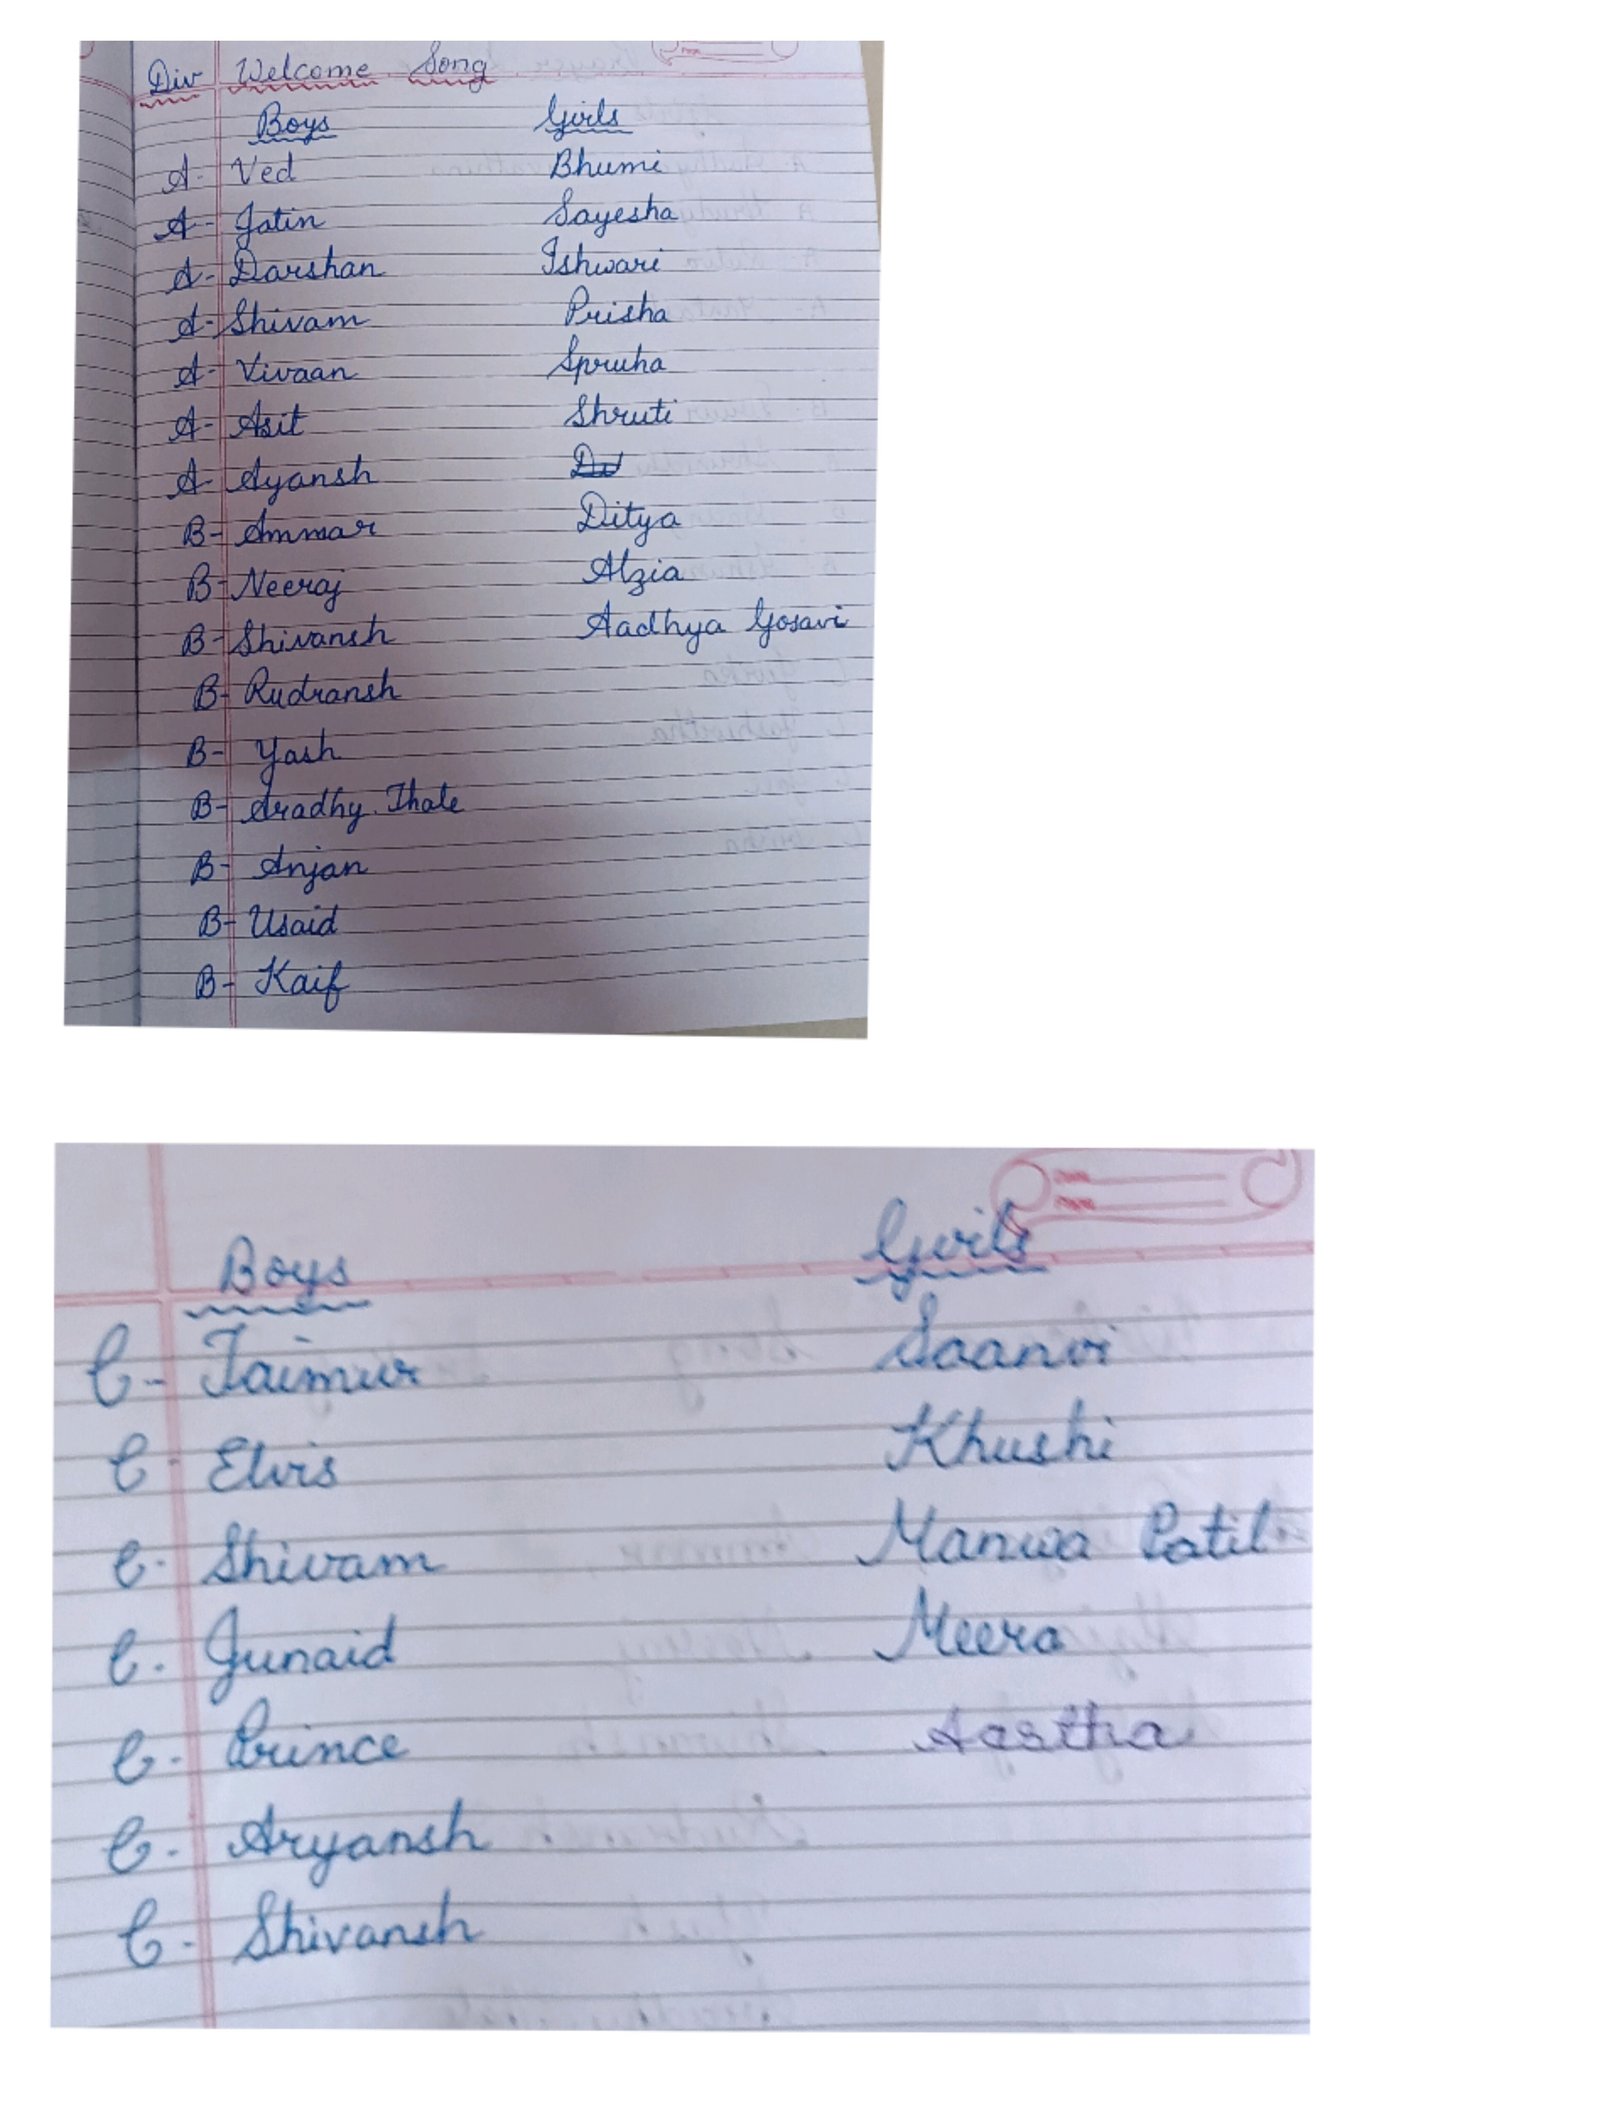 Div Welcome Song
Boys Girls
A- Ved Bhumi
A- Jatin Sayesha
A- Darshan Ishwari
A- Shivam Prisha
A- Vivaan Spruha
A- Asit Shruti
A- Ayansh
B- Ammar Ditya
B- Neeraj Alzia
B- Shivansh Aadhya Gosavi
B- Rudransh
B- Yash
B- Aradhy Thale
B- Anjan
B- Usaid
B- Kaif
Boys Girls
C- Taimur Saanvi
C- Elvis Khushi
C- Shivam Manwa Patil
C- Junaid Meera
C- Prince Aastha
C- Aryansh
C- Shivansh